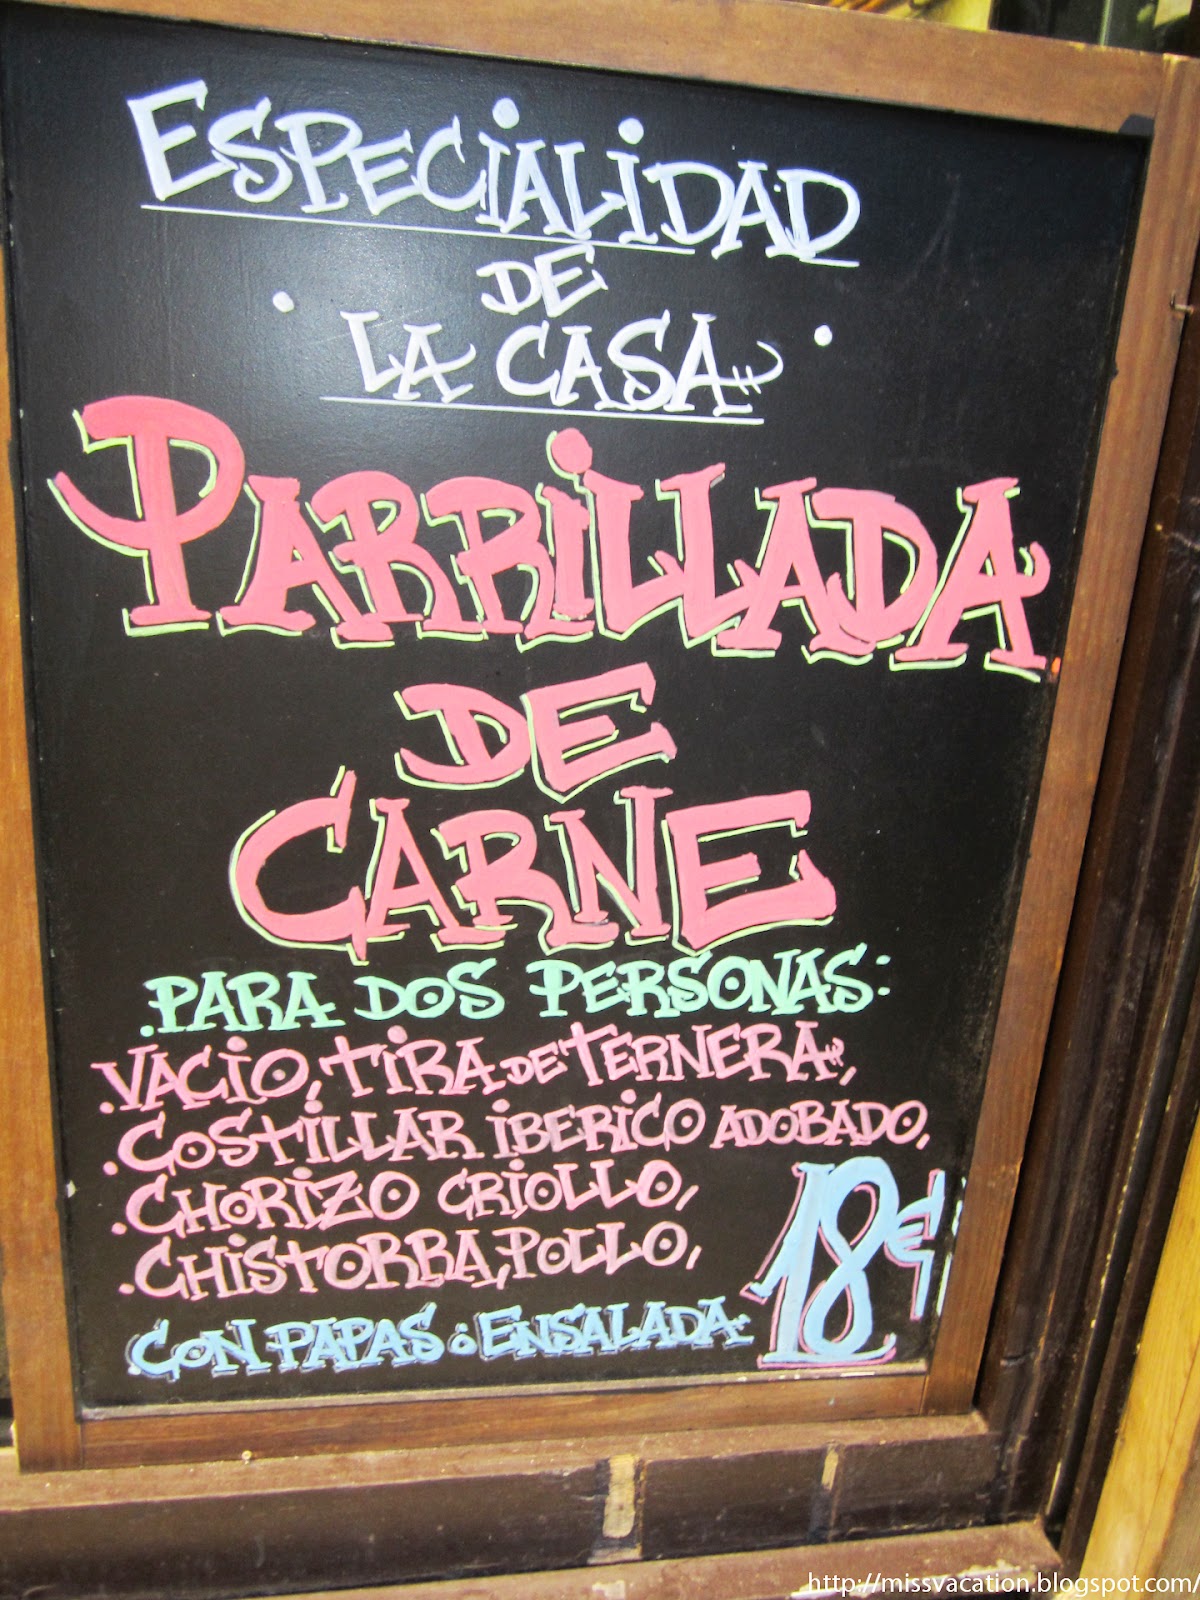 ESPECIALIDAD
DE
LA CASA
PARRILLADA
DE
CARNE
.PARA DOS PERSONAS:
.VACIO, TIRA DE TERNERA,
.COSTILLAR IBERICO ADOBADO,
.CHORIZO CRIOLLO,
.CHISTORRA, POLLO,
.CON PAPAS ó ENSALADA
18€
http://missvacation.blogspot.com/